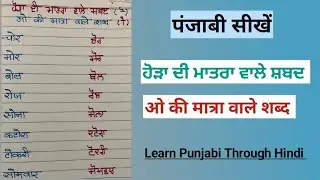 ਹੋੜਾ ਦੀ ਮਾਤਰਾ ਵਾਲੇ ਸ਼ਬਦ (ੋ)
ओ की मात्रा वाले शब्द (ो)
चोर ਚੋਰ
मोर ਮੋਰ
बोल ਬੋਲ
रोज ਰੋਜ
सोना ਸੋਨਾ
कटोरा ਕਟੋਰਾ
टोकरी ਟੋਕਰੀ
सोमवार ਸੋਮਵਾਰ
पंजाबी सीखें
ਹੋੜਾ ਦੀ ਮਾਤਰਾ ਵਾਲੇ ਸ਼ਬਦ
ओ की मात्रा वाले शब्द
Learn Punjabi Through Hindi